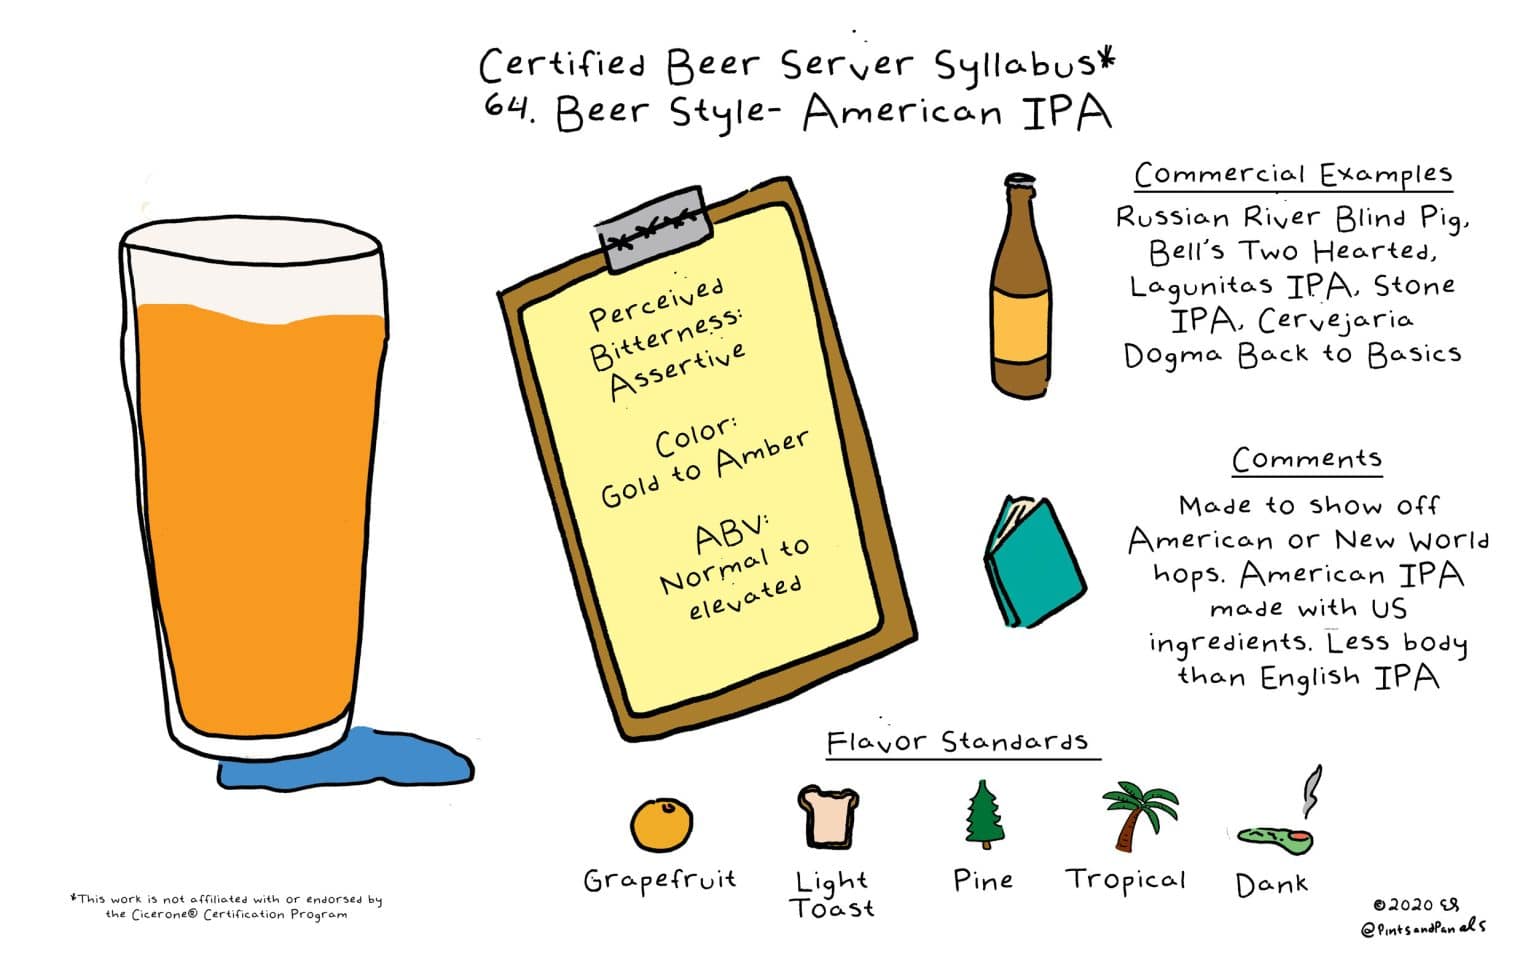 Certified Beer Server Syllabus*
64. Beer Style- American IPA
Perceived
Bitterness:
Assertive
Color:
Gold to Amber
ABV:
Normal to
elevated
Commercial Examples
Russian River Blind Pig,
Bell's Two Hearted,
Lagunitas IPA, Stone
IPA, Cervejaria
Dogma Back to Basics
Comments
Made to show off
American or New World
hops. American IPA
made with US
ingredients. Less body
than English IPA
Flavor Standards
Grapefruit
Light
Toast
Pine
Tropical
Dank
*This work is not affiliated with or endorsed by
the Cicerone® Certification Program
©2020
@PintsandPanels